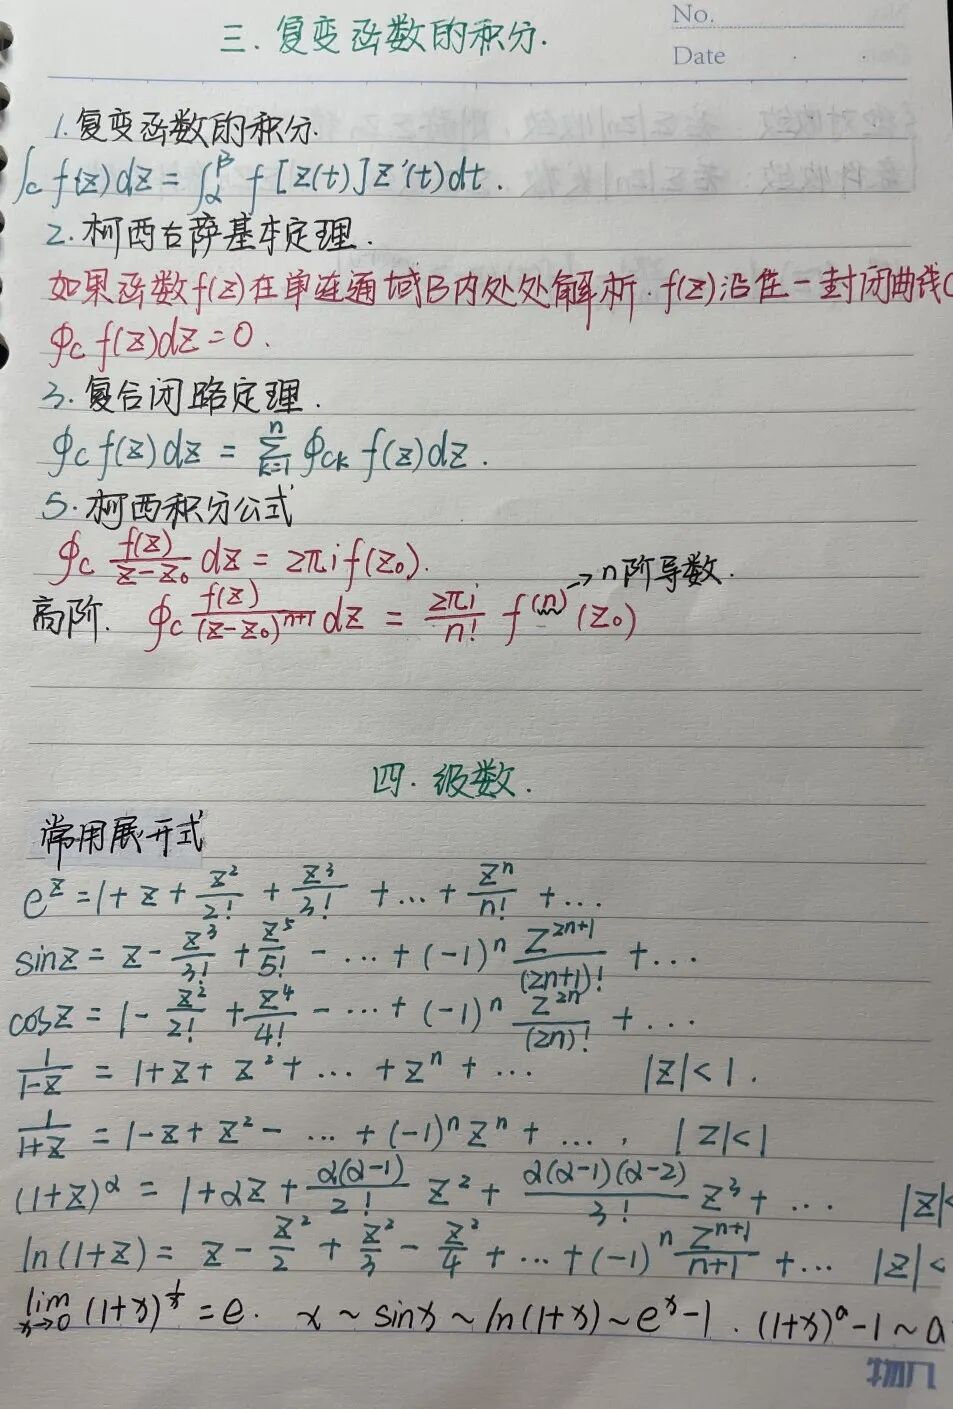 No.
三. 复变函数的积分.
Date
1. 复变函数的积分.
∫c f(z)dz = ∫α^β f[z(t)]z'(t)dt.
2. 柯西古萨基本定理.
如果函数f(z)在单连通域B内处处解析. f(z)沿任一封闭曲线C
∮c f(z)dz = 0.
3. 复合闭路定理.
∮c f(z)dz = Σ(k=1→n) ∮ck f(z)dz.
5. 柯西积分公式
∮c f(z)/(z-z₀) dz = 2πi f(z₀).
→ n阶导数.
高阶. ∮c f(z)/(z-z₀)^(n+1) dz = 2πi/n! f^(n)(z₀)
四. 级数.
常用展开式
e^z = 1 + z + z²/2! + z³/3! + ... + z^n/n! + ...
sinz = z - z³/3! + z⁵/5! - ... + (-1)^n z^(2n+1)/(2n+1)! + ...
cosz = 1 - z²/2! + z⁴/4! - ... + (-1)^n z^(2n)/(2n)! + ...
1/(1-z) = 1 + z + z² + ... + z^n + ... |z|<1.
1/(1+z) = 1 - z + z² - ... + (-1)^n z^n + .... |z|<1
(1+z)^α = 1 + αz + α(α-1)/2! z² + α(α-1)(α-2)/3! z³ + ... |z|<
ln(1+z) = z - z²/2 + z²/3 - z²/4 + ... + (-1)^n z^(n+1)/(n+1) + ... |z|<
lim(x→0) (1+x)^(1/x) = e. x ~ sinx ~ ln(1+x) ~ e^x-1. (1+x)^a-1 ~ a